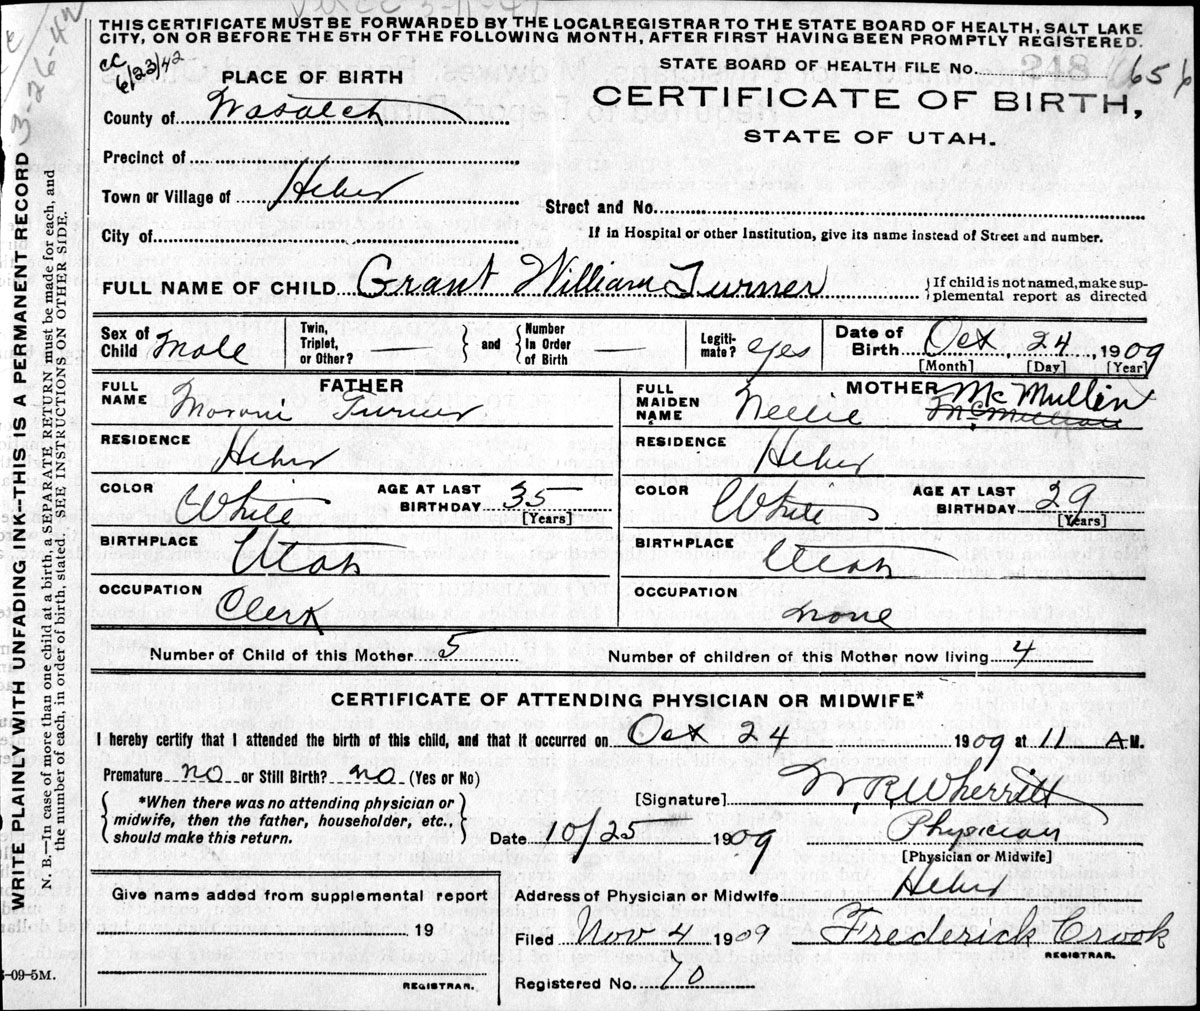 THIS CERTIFICATE MUST BE FORWARDED BY THE LOCAL REGISTRAR TO THE STATE BOARD OF HEALTH, SALT LAKE
CITY, ON OR BEFORE THE 5TH OF THE FOLLOWING MONTH, AFTER FIRST HAVING BEEN PROMPTLY REGISTERED.
3-26-42
cc
6/23/42
STATE BOARD OF HEALTH FILE No. 248 656
PLACE OF BIRTH
CERTIFICATE OF BIRTH,
STATE OF UTAH.
County of Wasatch
Precinct of
Town or Village of Heber
Street and No.
City of
If in Hospital or other Institution, give its name instead of Street and number.
FULL NAME OF CHILD Grant William Turner
If child is not named, make sup-
plemental report as directed
Sex of Child Male
Twin, Triplet, or Other? —
and
Number In Order of Birth —
Legiti-mate? yes
Date of Birth Oct 24, 1909
[Month] [Day] [Year]
FATHER
FULL NAME Moroni Turner
MOTHER
FULL MAIDEN NAME Nellie McMullin
RESIDENCE Heber
RESIDENCE Heber
COLOR White
AGE AT LAST BIRTHDAY 35
[Years]
COLOR White
AGE AT LAST BIRTHDAY 29
[Years]
BIRTHPLACE Utah
BIRTHPLACE Utah
OCCUPATION Clerk
OCCUPATION none
Number of Child of this Mother 5
Number of children of this Mother now living 4
CERTIFICATE OF ATTENDING PHYSICIAN OR MIDWIFE*
I hereby certify that I attended the birth of this child, and that it occurred on Oct 24 1909 at 11 A M.
Premature no or Still Birth? no (Yes or No)
*When there was no attending physician or
midwife, then the father, householder, etc.,
should make this return.
[Signature] W. R. Wherritt
Date 10/25 1909
Physician
[Physician or Midwife]
Give name added from supplemental report
19
REGISTRAR.
Address of Physician or Midwife Heber
Filed Nov 4 1909 Frederick Crook
REGISTRAR.
Registered No. 70
WRITE PLAINY WITH UNFADING INK--THIS IS A PERMANENT RECORD
N. B.—In case of more than one child at a birth, a SEPARATE RETURN must be made for each, and
the number of each, in order of birth, stated. SEE INSTRUCTIONS ON OTHER SIDE.
-09-5M.